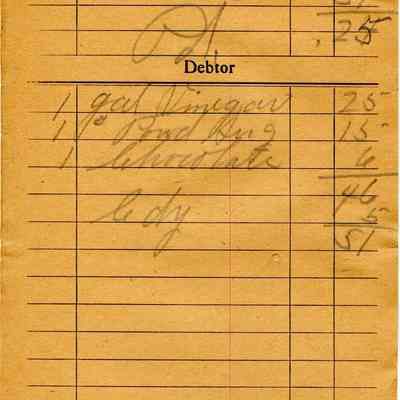 51
Pd. .25
Debtor
1 gal Vinegar 25
1 15
1 Chocolate 6
46
Cdy 5
51